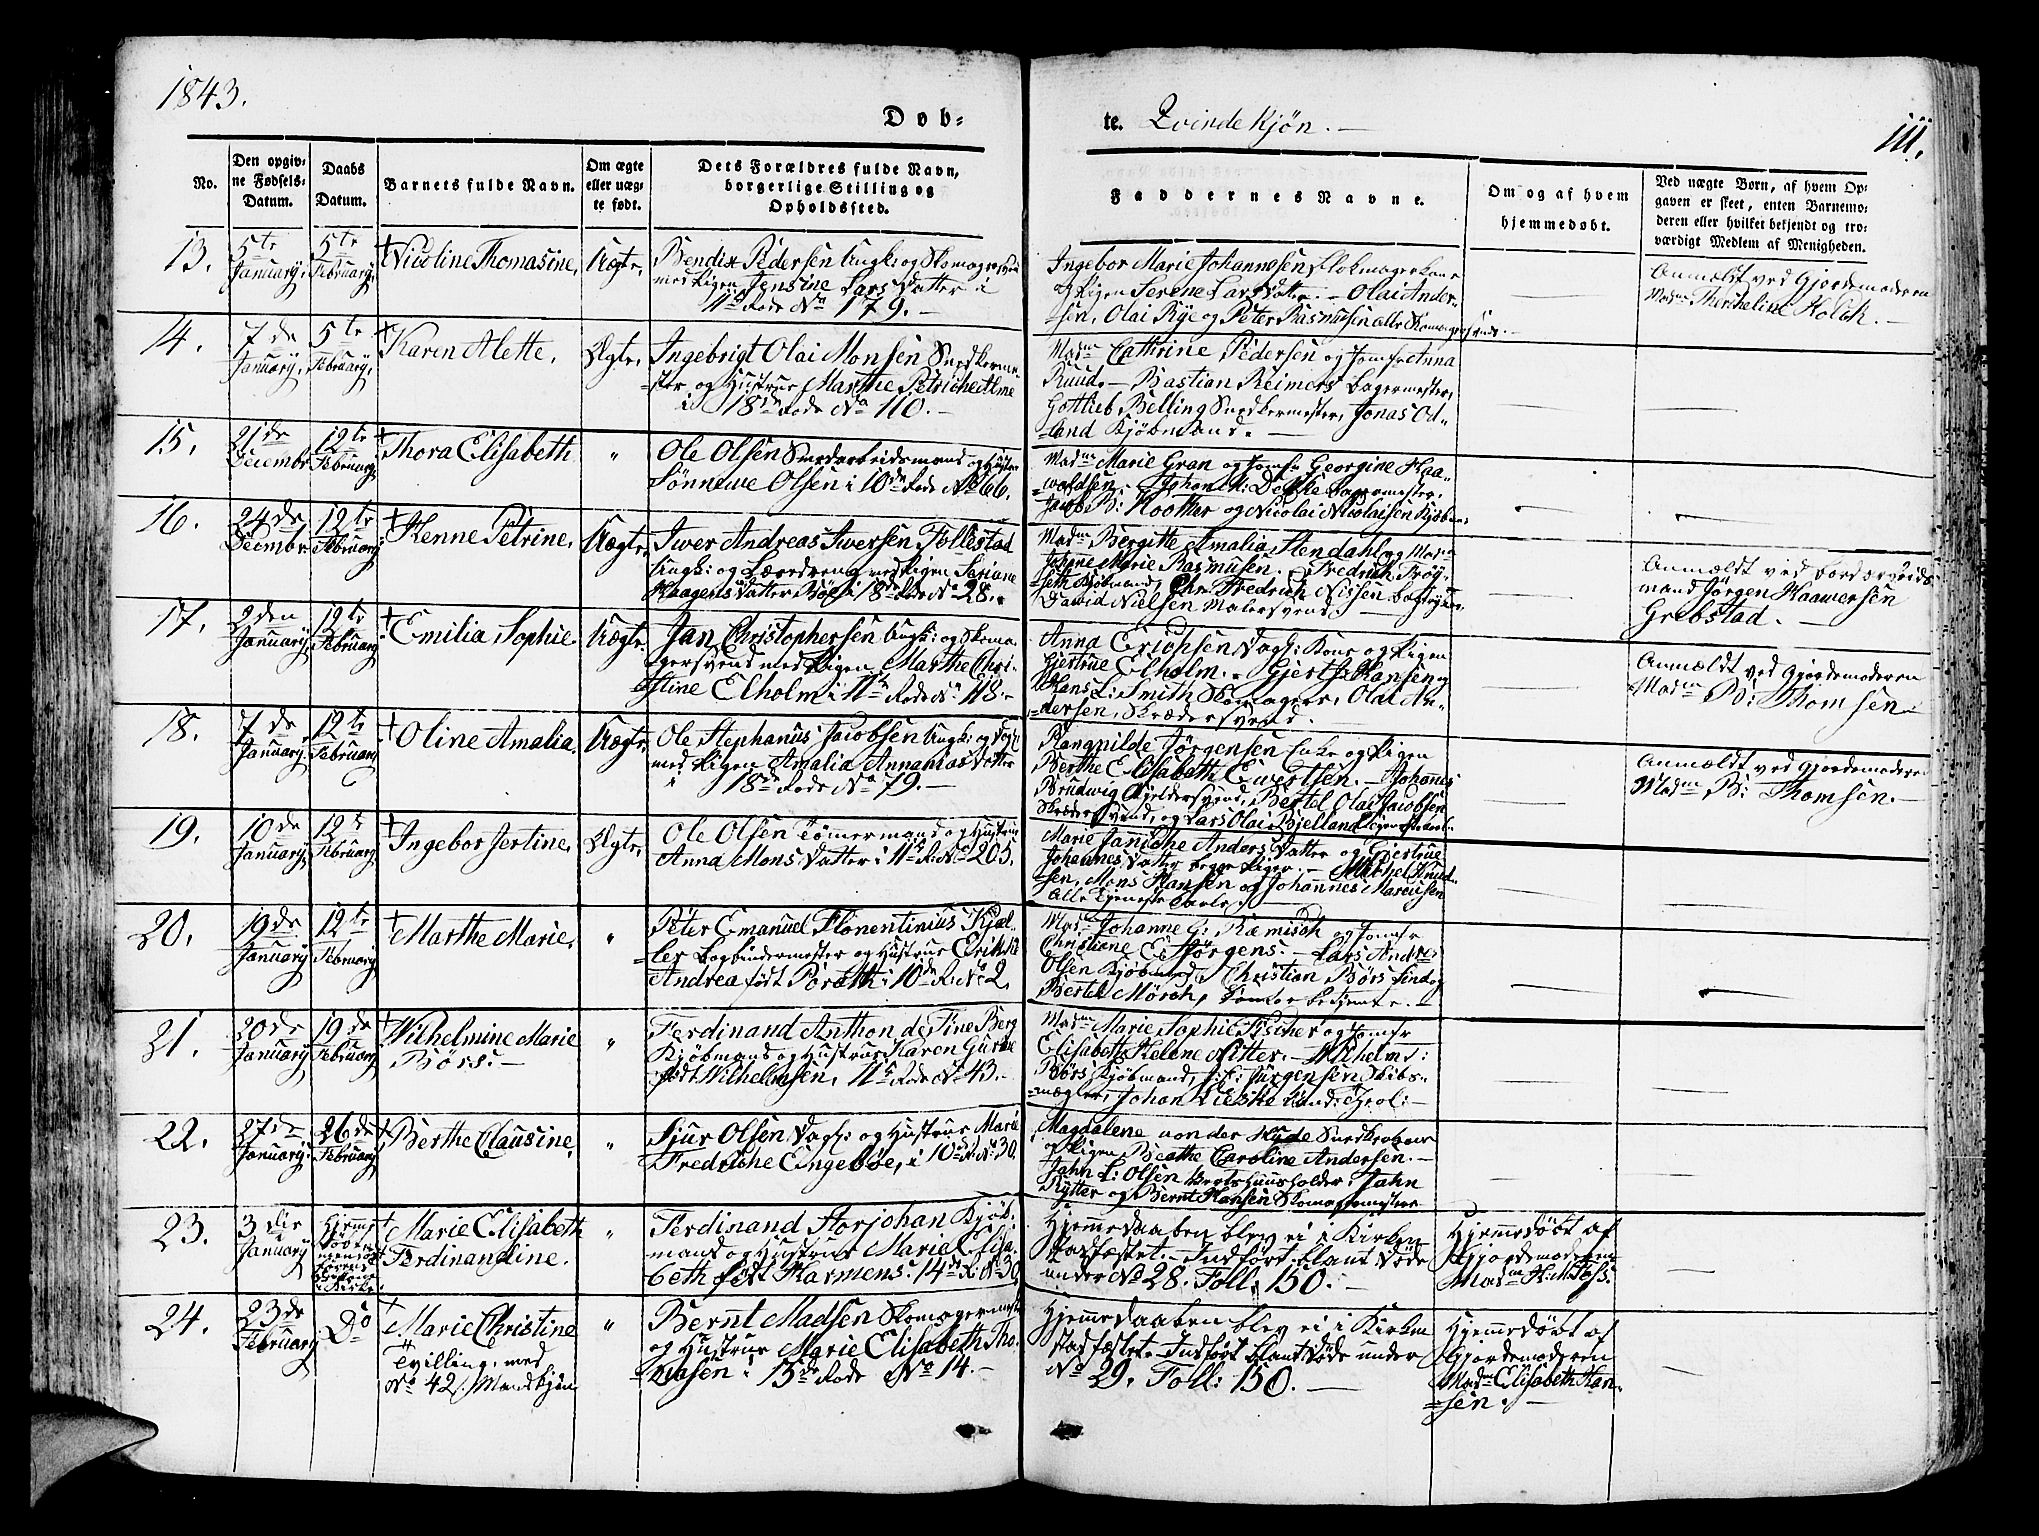 1843.
Døb-
te. Qvindekjøn. —
111.
No.
Den opgiv-
ne Fødsels-
Datum.
Daabs
Datum.
Barnets fulde Navn.
Om ægte
eller uæg-
te født.
Dets Forældres fulde Navn,
borgerlige Stilling og
Opholdssted.
Faddernes Navne.
Om og af hvem
hjemmedøbt.
Ved uægte Børn, af hvem Op-
gaven er skeet, enten Barnemo-
deren eller hvilket bekjendt og tro-
værdigt Medlem af Menigheden.
13.
5te
January.
5te
February.
+ Nicoline Thomasine,
Uægte,
Bendix Pedersen Ungk: og Skomagersvend
med Pigen Jensine Larsdatter i
11te Rode No 179. —
Ingebor Marie Johannesen Klokmagerkone
og Pigen Serene Larsdatter. — Olai Ander-
sen, Olai Rye og Peter Rasmussen alle Skomagersvende. —
—
Anmeldt ved Gjordemoderen
Madm Thricheline Holck. —
14.
7de
January.
5te
February.
+ Karen Alette,
Ægte,
Ingebrigt Olai Monsen Snedkerme-
ster og Hustrue Marthe Petricheline
i 18de Rode No 110. —
Madm Cathrine Pedersen og Jomfr Anna
Ruud. — Bastian Reimers Bagermester,
Gotlieb Belling Snedkermester, Jonas Od-
land Kjøbmand. —
—
—
15.
21de
Decembr
12te
February
+ Thora Elisabeth
"
Ole Olsen Smedarbeidsmand og Hustrue
Sønnewe Olsen i 10de Rode No 66.
Madm Marie Gran og Jomfr Georgine Haa-
woldsen. — Johan H: Dethke Bagermester,
Jacob B: Kootter og Nicolai Nicolaisen Kjøbm:
—
—
16.
24de
Decembr
12te
February
+ Henne Petrine,
Uægte,
Iwer Andreas Iwersen Follestad
Ungk: og Læredreng med Pigen Seriane
Haagensdatter Bøe i 18de Rode No 28.
Madm Bergitte Amalia Stendahl og Madm
Johane Marie Rasmusen. — Fredrik Frøy-
seth Kjøbmand, Chr. Fredrich Nissen Bogtrykker,
David Nielsen Malersvend. —
—
Anmeldt ved Bordarbeids-
mand Jørgen Haawersen
Grebstad. —
17.
2den
January
12te
February
+ Emilia Sophie
Uægte,
Jan Christophersen Ungk: og Skoma-
gersvend med Pigen Marthe Chri-
stine Elholm i 11te Rode No 118. —
Anna Erichsen Dagk: Kone og Pigen
Gjertrue Elholm. — Gjert Hansen og
Hans L: Smith Skomagere, Olai An-
dersen, Skrædersvend. —
—
Anmeldt ved Gjordemoderen
Madm B: Thomsen. —
18.
7de
January.
12te
February
+ Oline Amalia
Uægte,
Ole Stephanus Jacobsen Ungk: og Dagk:
med Pigen Amalia Annaniasdatter
i 18de Rode No 79. —
Rangnilde Jørgensen Enke og Pigen
Berthe Elisabeth Ewertsen. — Johanes
Brudwig Kjeldersvend, Bertel Olai Jacobsen
Skrædersvend, og Lars Olai Bjelland
—
Anmeldt ved Gjordemoderen
Madm B: Thomsen. —
19.
10de
January,
12te
February
+ Ingebor Jertine,
Ægte,
Ole Olsen Tømermand og Hustrue
Anna Monsdatter i 11te R. No 205.
Marie Janiche Andersdatter og Gjertrue
Johannesdatter begge Piger. — Michel Knud-
sen, Mons Hansen og Johannes Marcusen
alle Tjeneste Karle. —
—
—
20.
19de
January
12te
February
+ Marthe Marie,
"
Peter Emanuel Florentinius Kjæl-
ler Bogbindermester og Hustrue Ulrikke
Andrea født Porath i 10de R. No 2.
Mad. Johanne G: Ræmisch og Jomfr
Christiane E: Jörgens. — Lars Andre:
Olsen Kjøbmand, Christian Børs og
Bertel Mørch,
—
—
21.
20de
January
19de
February
+ Wilhelmine Marie
Børs. —
"
Ferdinand Anthon de Fine Berg
Kjøbmand og Hustrue Karen Gurine
født Wilhelmsen, 11te Rode No 43. —
Madm Marie Sophie Fischer og Jomfr
Elisabeth Helene Ritter. — Wilhelm D:
Børs Kjøbmand, Jürgensen Skibs-
mægler, Johan Lieske Cand: Theol: —
—
—
22.
27de
January.
26de
February
+ Berthe Clausine,
"
Sjur Olsen, Dagk: og Hustrue Marie
Fredriche Engebøe, i 10de R. No 30.
Magdalene von der Hyde Snedkerkone
og Pigen Beathe Caroline Andersen. —
Jahn L: Olsen Vertshuusholder, Jahn
Rytter og Bernt Hansen Skomagermestere
—
—
23.
3die
January
Hjemme-
døbt
Kirke.
+ Marie Elisabeth
Ferdinandine.
"
Ferdinand Storjohan Kjøb-
mand og Hustrue Marie Elisa-
beth født Harmens. 14de R. No 30
Hjemmedaaben blev ei i Kirken
stadfæstet. — Indført blant Døde
under No 28. Foll: 150. —
Hjemmedøbt af
Gjordemoderen
Madm H: M: Foss.
—
24.
23de
February
Do
+ Marie Christine
Tvilling, med
No 42 Mandkjøn
"
Bernt Madsen Skomagermester
og Hustrue Marie Elisabeth Tho-
masen i 15de Rode No 14. —
Hjemmedaaben blev ei i Kirken
stadfæstet. — Indført blant Døde under
No 29. Foll: 150. —
Hjemmedøbt af
Gjordemoderen
Madm Elisabeth Han-
sen. —
—